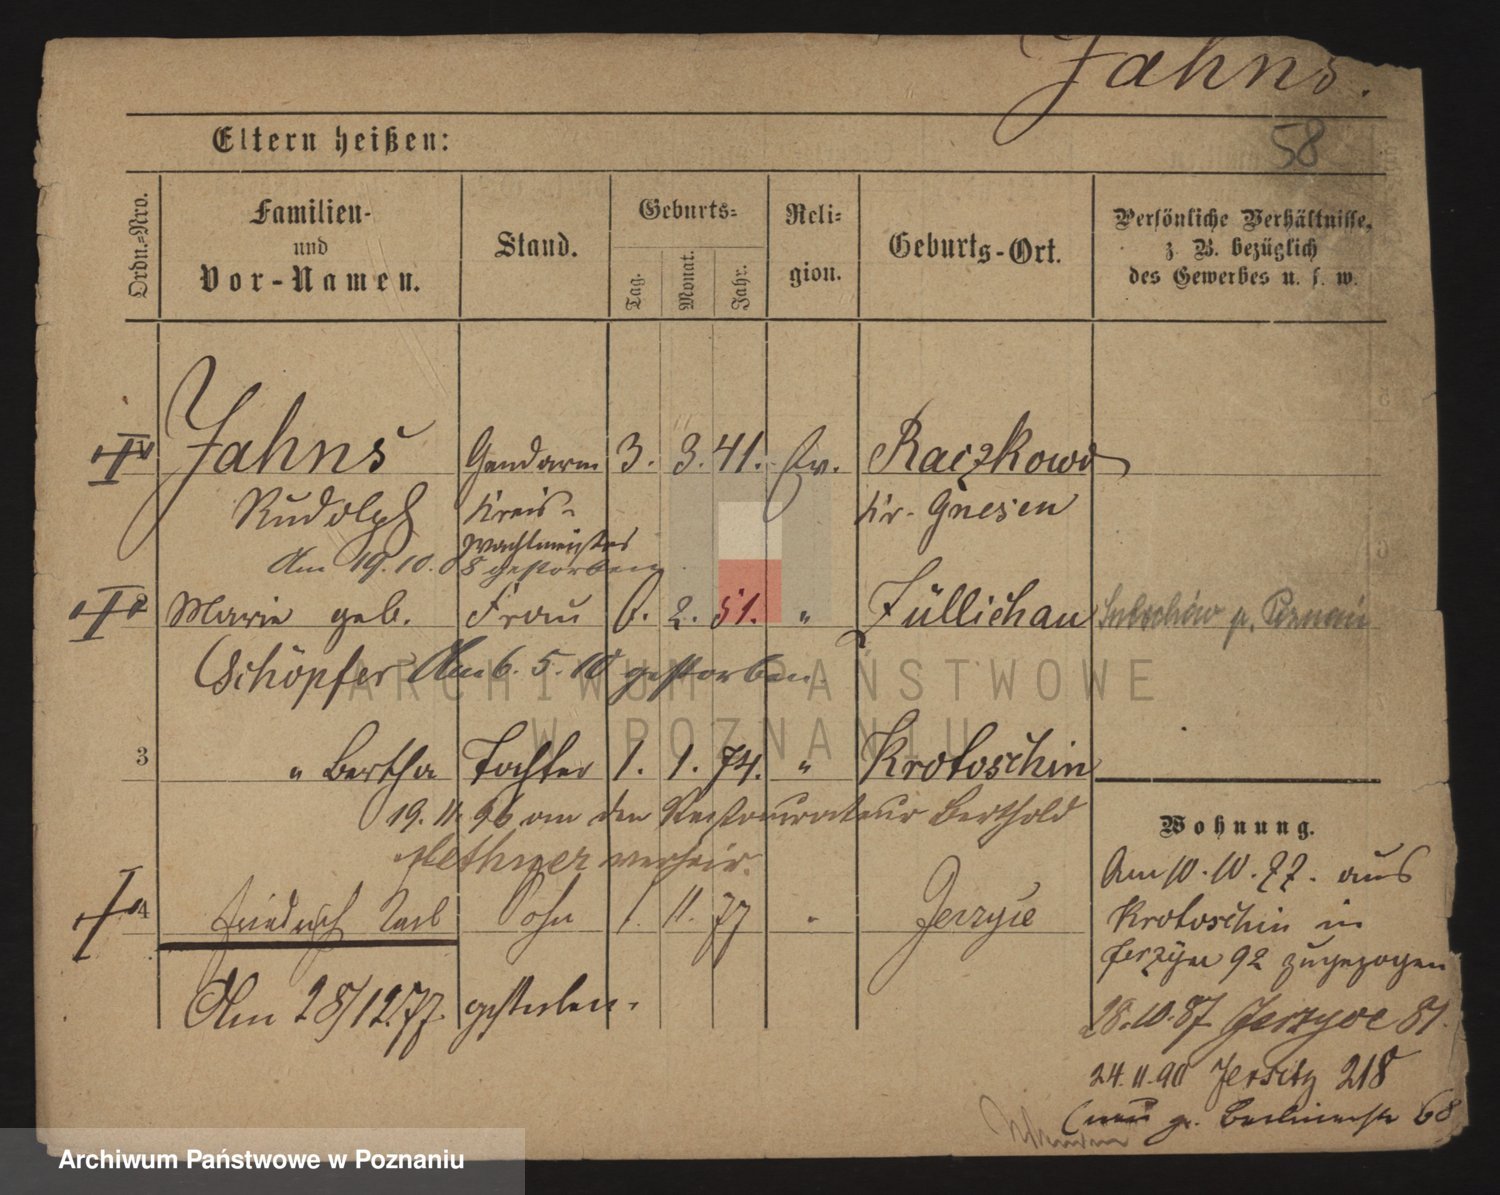 Jahns.
58
Eltern heißen:
Ordn.=Nro.
Familien-
und
Vor-Namen.
Stand.
Geburts=
Tag.
Monat.
Jahr.
Reli=
gion.
Geburts-Ort.
Persönliche Verhältnisse,
z. B. bezüglich
des Gewerbes u. s. w.
Jahns Gendarm 3. 3. 41. Ev. Raczkowo
Rudolph Kreis- Kr. Gnesen
wachtmeister
Am 19.10.08 gestorben
Marie geb. Frau 6. 2. 51. " Züllichau
Schöpfer Am 6. 5. 10 gestorben.
3 " Bertha Tochter 1. 1. 74. " Krotoschin
19. 11. 96 an den Restaurateur Berthold
verheir.
4 Friedrich Carl Sohn 1. 11. 77 " Jerzyce
Am 28/12.77. gestorben.
Wohnung.
Am 10. 10. 77. aus
Krotoschin in
Jerzyce 92 zugezogen
28.10.87 Jerzyce 81.
24.11.90 Jersitz 218
(neu gr. Berlinerstr 68
ARCHIWUM PAŃSTWOWE
W POZNANIU
Archiwum Państwowe w Poznaniu